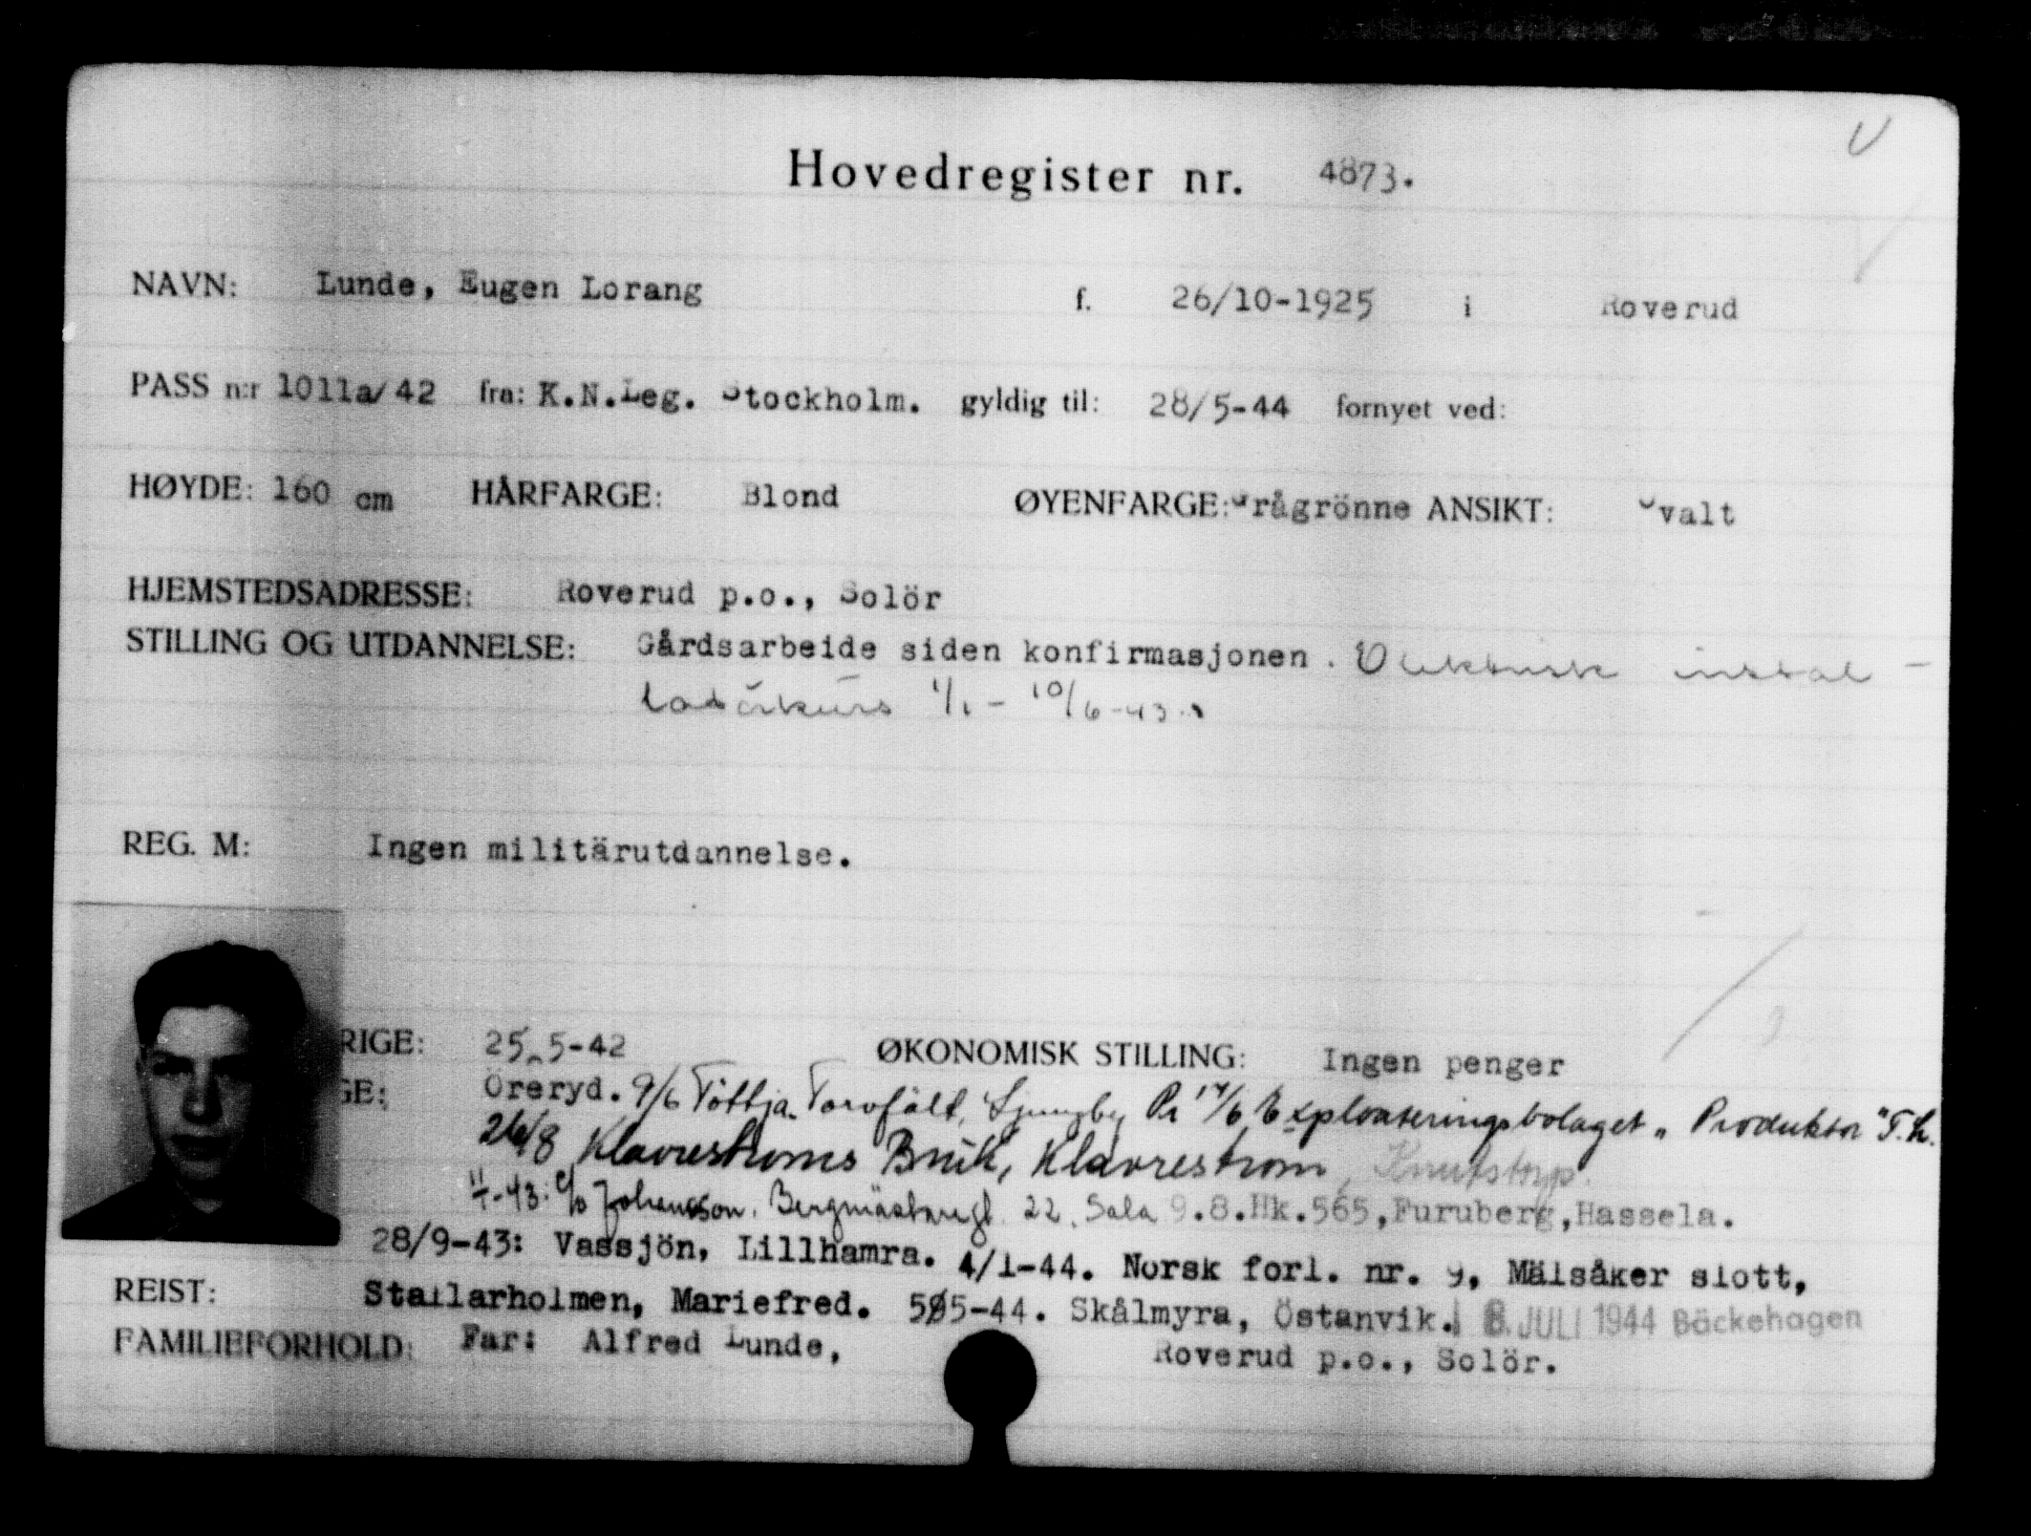 Hovedregister nr. 4873.
NAVN: Lunde, Eugen Lorang f. 26/10-1925 i Roverud
PASS n:r 1011a/42 fra: K.N.Leg. Stockholm. gyldig til: 28/5-44 fornyet ved:
HØYDE: 160 cm HÅRFARGE: Blond ØYENFARGE: Grågrönne ANSIKT: Ovalt
HJEMSTEDSADRESSE: Roverud p.o., Solör
STILLING OG UTDANNELSE: Gårdsarbeide siden konfirmasjonen. Elektrisk instal-
latörkurs 1/1 - 10/6-43.
REG. M: Ingen militärutdannelse.
RIGE: 25.5-42 ØKONOMISK STILLING: Ingen penger
GE: Öreryd. 9/6 Töttja Torvfält, Ljungby Pr 17/6 Exploateringsbolaget "Produktor" T.h.
26/8 Klavreströms Bruk, Klavreström, Knutstorp.
-43: c/o Johansson, Bergmästaregt. 22, Sala 9.8.Hk.565, Furuberg, Hassela.
28/9-43: Vassjön, Lillhamra. 4/1-44. Norsk forl. nr. 9, Mälsåker slott,
REIST: Stallarholmen, Mariefred. 5/5-44. Skålmyra, Östanvik. 8. JULI 1944 Bäckehagen
FAMILIEFORHOLD: Far: Alfred Lunde, Roverud p.o., Solör.